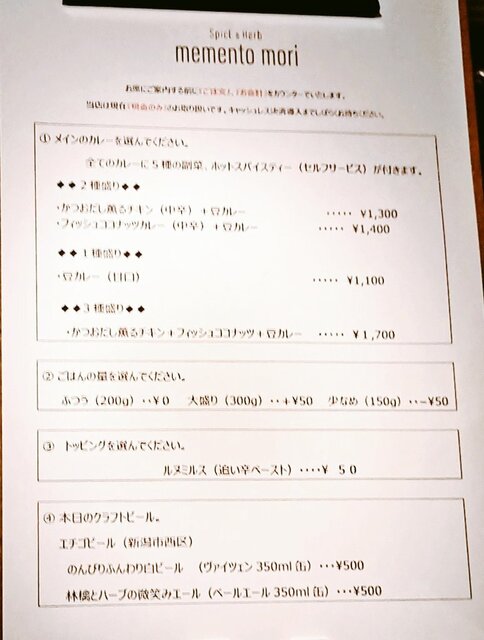 Spice & Herb
memento mori
お席にご案内する前に「ご注文」「お会計」をカウンターでいたします。
当店は現在「現金のみ」のお取り扱いです。キャッシュレス決済導入までしばらくお待ちください。
① メインのカレーを選んでください。
全てのカレーに5種の副菜、ホットスパイスティー（セルフサービス）が付きます。
◆◆2種盛り◆◆
・かつおだし薫るチキン（中辛）＋豆カレー ····· ¥1,300
・フィッシュココナッツカレー（中辛）＋豆カレー ····· ¥1,400
◆◆1種盛り◆◆
・豆カレー（甘口） ····· ¥1,100
◆◆3種盛り◆◆
・かつおだし薫るチキン＋フィッシュココナッツ＋豆カレー ····· ¥1,700
② ごはんの量を選んでください。
ふつう（200g）··¥0 大盛り（300g）··＋¥50 少なめ（150g）··－¥50
③ トッピングを選んでください。
ルヌミルス（追い辛ペースト）····¥ 50
④ 本日のクラフトビール。
エチゴビール（新潟市西区）
のんびりふんわり白ビール （ヴァイツェン 350ml缶）···¥500
林檎とハーブの微笑みエール（ペールエール 350ml缶）···¥500